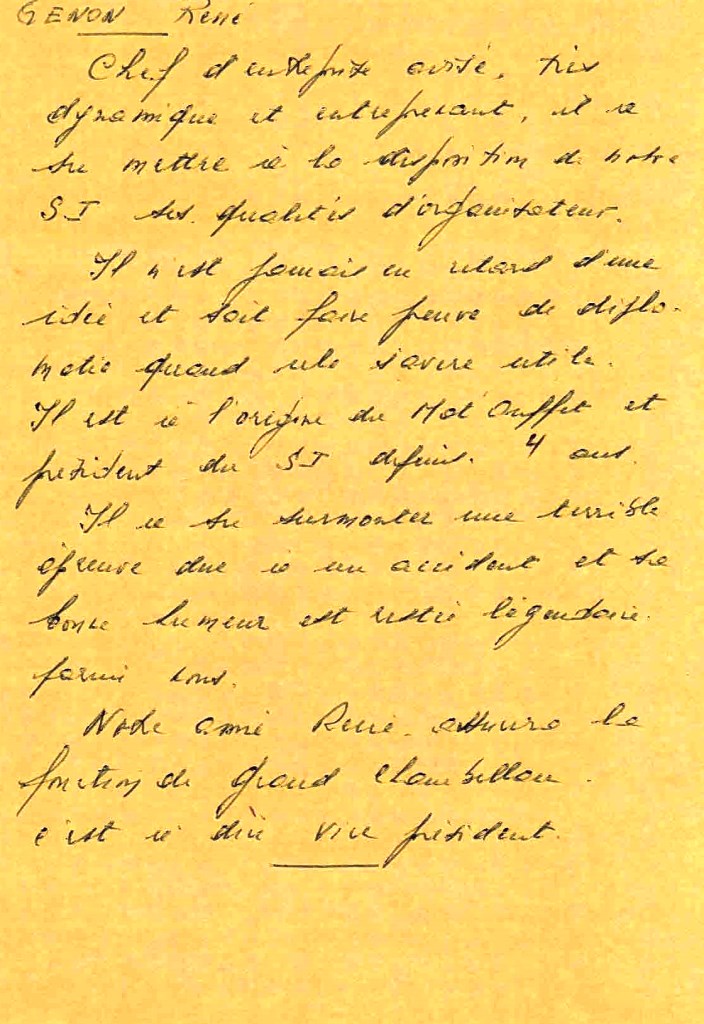 GENON René
Chef d'entreprise avisé, très
dynamique et entreprenant, il a
su mettre à la disposition de notre
SI ses qualités d'organisateur.
Il n'est jamais en retard d'une
idée et sait faire preuve de diplo-
matie quand cela s'avère utile.
Il est à l'origine du et
président du SI depuis 4 ans.
Il a su surmonter une terrible
épreuve due à un accident et sa
bonne humeur est restée légendaire
parmi nous.
Notre ami René assure la
fonction de grand Chambellan.
c'est à dire vice président.